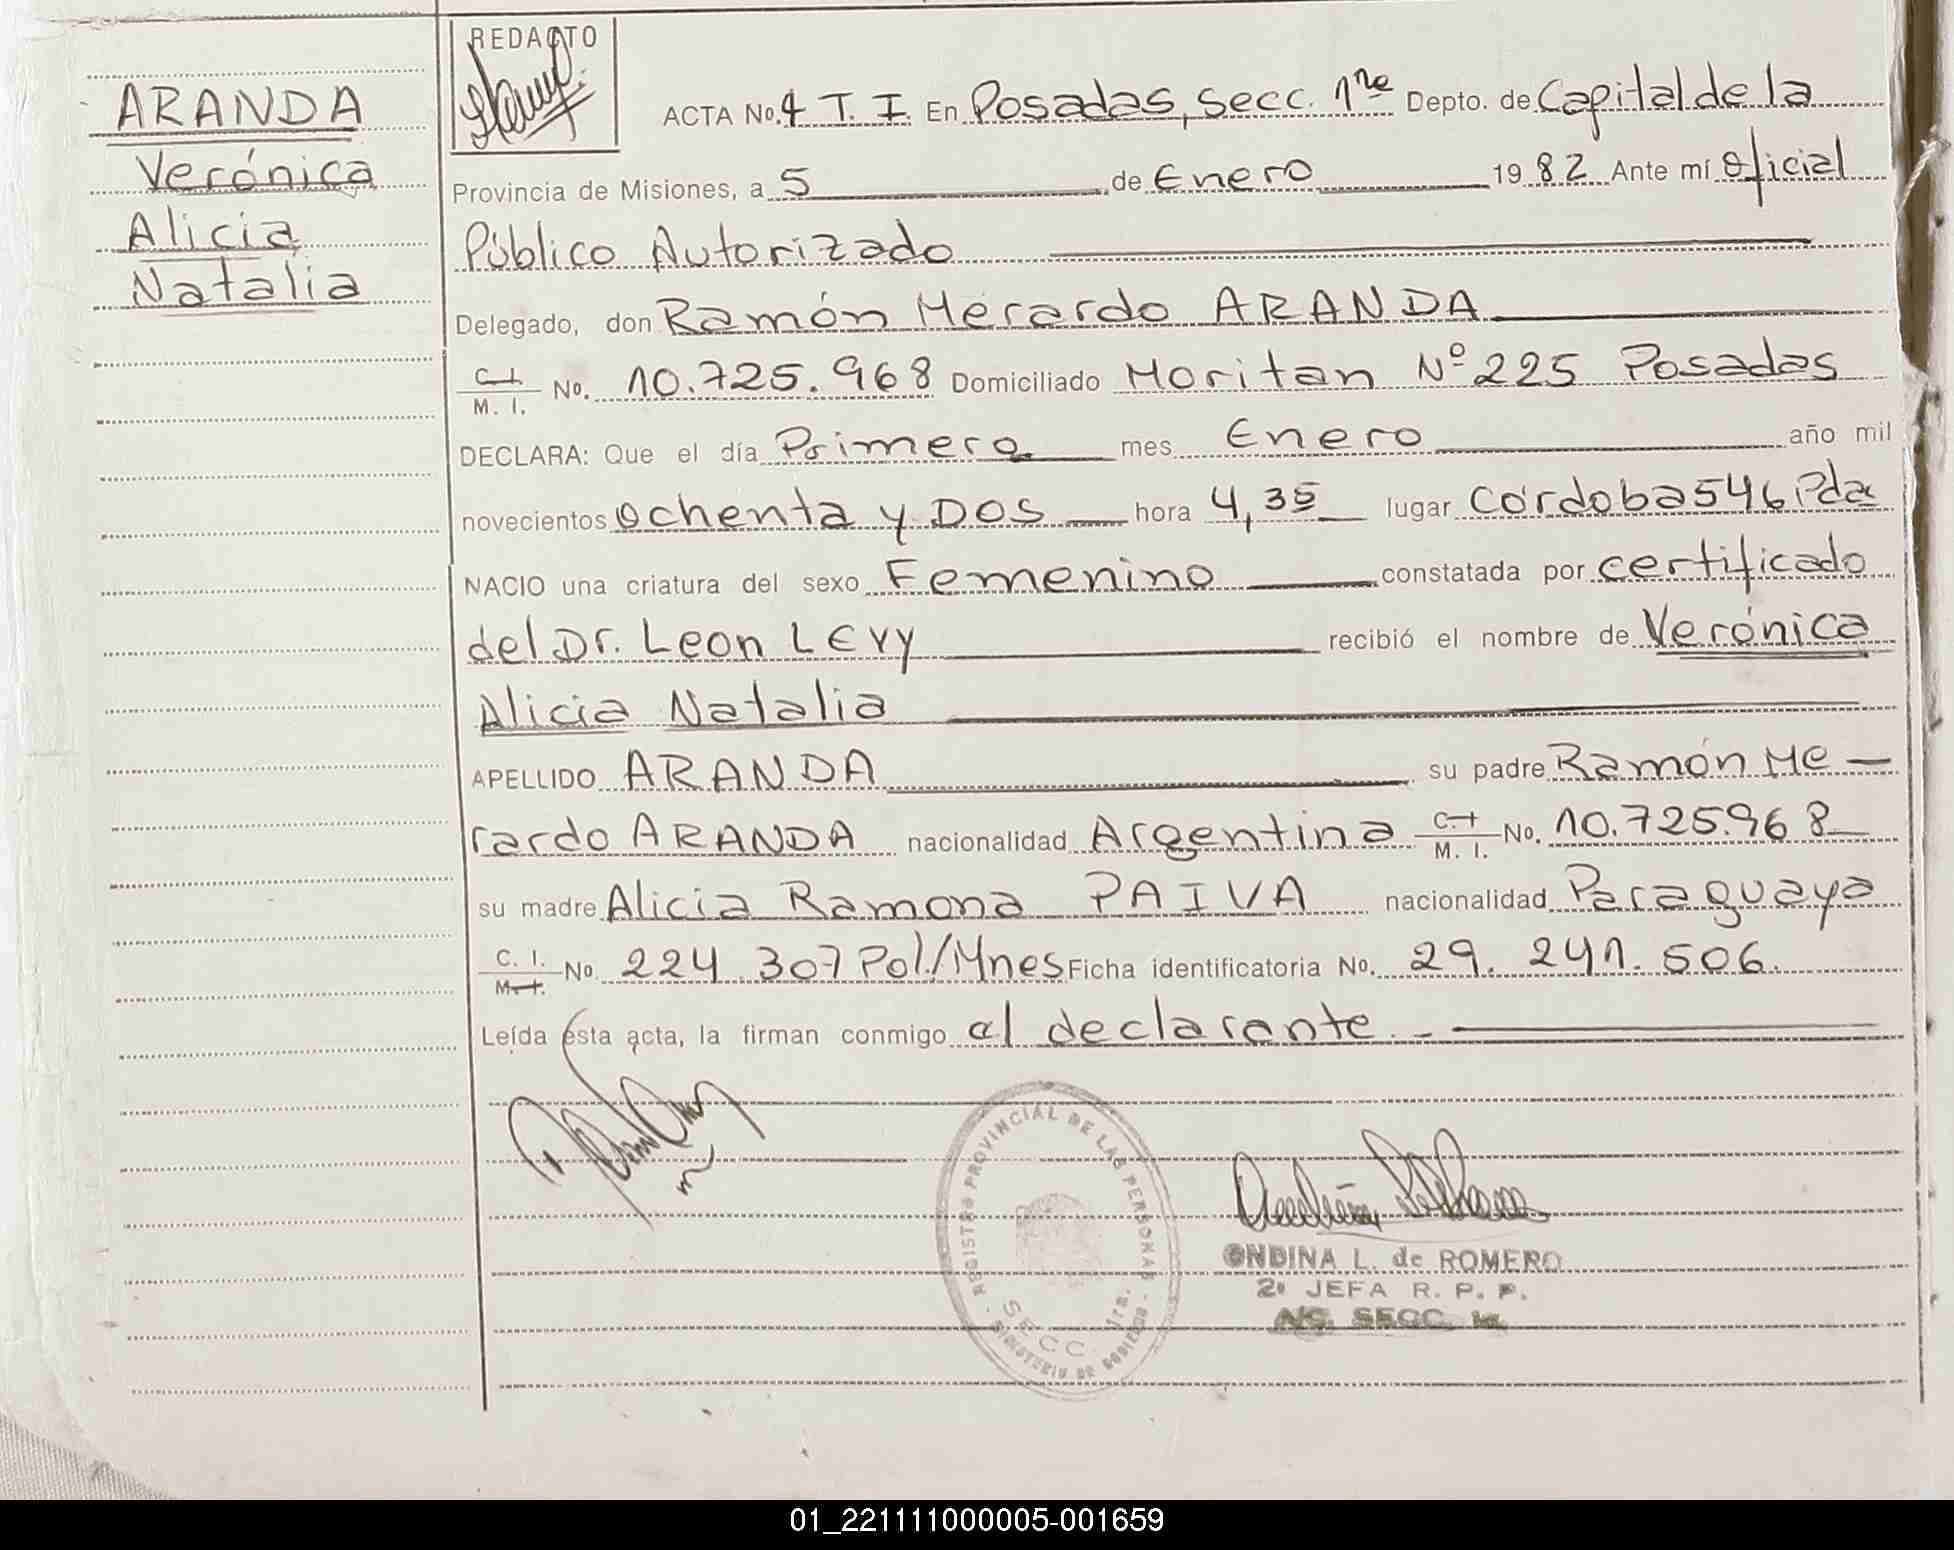 ARANDA
Verónica
Alicia
Natalia
REDACTO
ACTA No. 4 T. I. En Posadas, secc. 1ra Depto. de Capital de la
Provincia de Misiones, a 5 de Enero 1982 Ante mí Oficial
Público Autorizado
Delegado, don Ramón Merardo ARANDA
C. I. / M. I. No. 10.725.968 Domiciliado Moritan Nº 225 Posadas
DECLARA: Que el día Primero mes Enero año mil
novecientos ochenta y DOS hora 4,35 lugar Córdoba 546 Pdas
NACIO una criatura del sexo Femenino constatada por certificado
del Dr. Leon LEVY recibió el nombre de Verónica
Alicia Natalia
APELLIDO ARANDA su padre Ramón Me-
rardo ARANDA nacionalidad Argentina C. I. / M. I. No. 10.725.968
su madre Alicia Ramona PAIVA nacionalidad Paraguaya
C. I. / M. I. No. 224.307 Pol./Mnes Ficha identificatoria No. 29.241.506.
Leída ésta acta, la firman conmigo el declarante.-
REGISTRO PROVINCIAL DE LAS PERSONAS
SECC. 1ra.
MINISTERIO DE GOBIERNO
ONDINA L. de ROMERO
2º JEFA R. P. P.
A/C. SECC. 1a
01_221111000005-001659